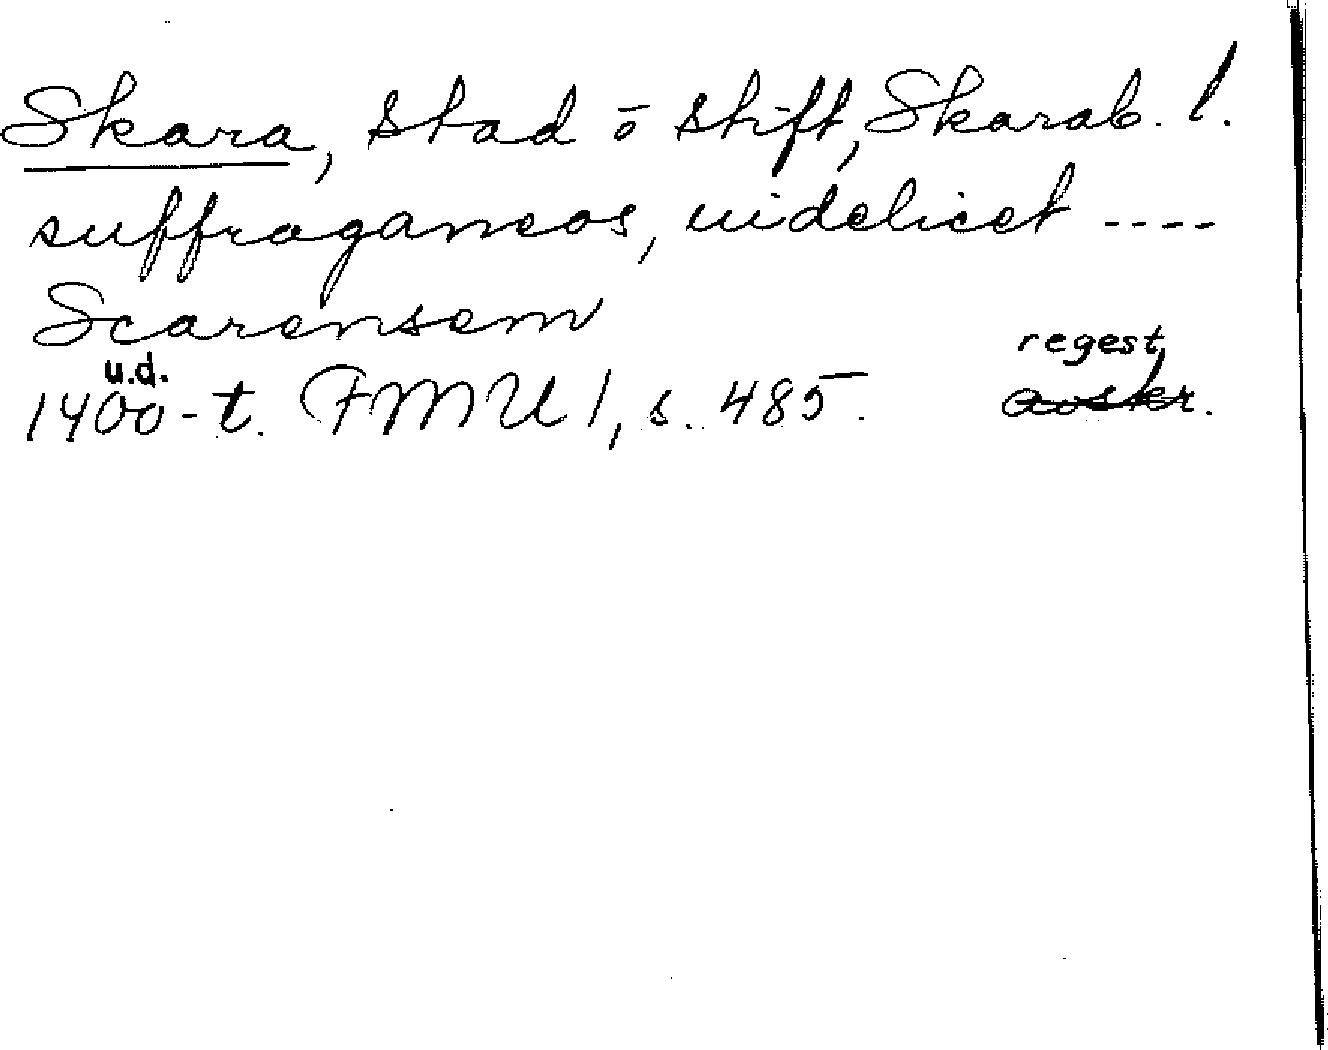 Skara, stad ō stift, Skarab. l.
suffraganeos, uidelicet ----
Scarensem
u.d. regest
1400-t. FMU 1, s. 485. avskr.